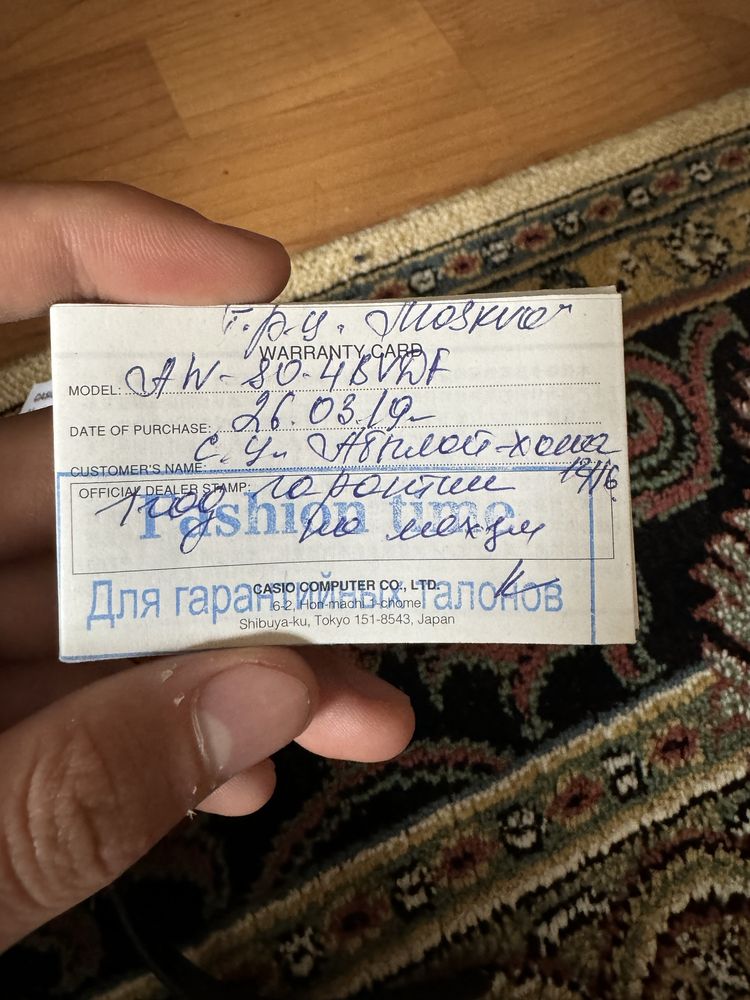 т.р.ц. Moskva
WARRANTY CARD
MODEL: AW-80-4BVDF
DATE OF PURCHASE: 26.03.19г
CUSTOMER'S NAME: с. уг. Абылай-хана
12/16.
OFFICIAL DEALER STAMP:
1 год гарантии
Fashion time
по механ
CASIO COMPUTER CO., LTD.
Для гарантийных талонов
6-2, Hon-machi 1-chome
Shibuya-ku, Tokyo 151-8543, Japan